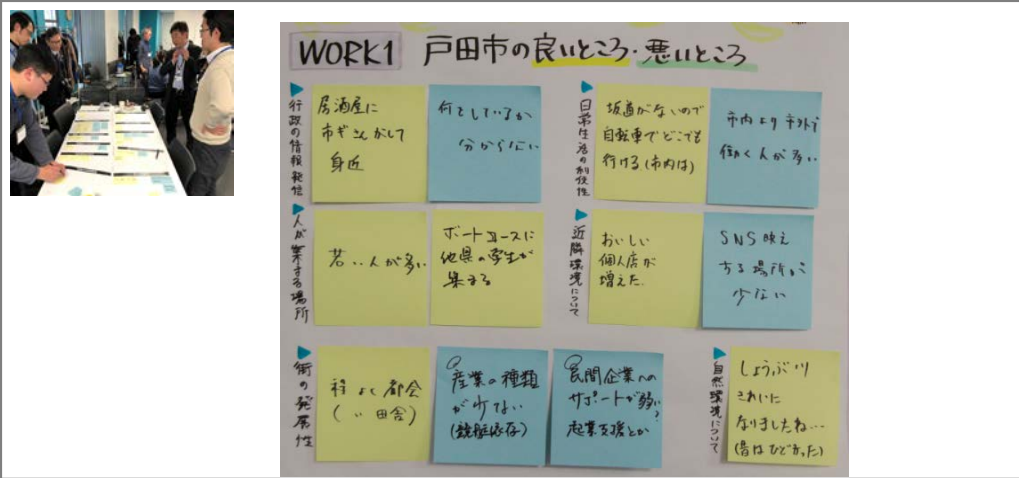 WORK1 戸田市の良いところ・悪いところ
行政の情報発信
居酒屋に
市ぎさんがして
身近
何をしているか
分からない
日常生活の利便性
坂道がないので
自転車でどこでも
行ける(市内は)
市内より市外で
働く人が多い
人が集まる場所
若い人が多い
ボートコースに
他県の学生が
集まる
近隣環境について
おいしい
個人店が
増えた.
SNS映え
する場所が
少ない
街の発展性
程よく都会
( 〃 田舎)
産業の種類
が少ない
(競艇依存)
民間企業への
サポートが弱い?
起業支援とか
自然環境について
しょうぶ川
きれいに
なりましたね…
(昔はひどかった)